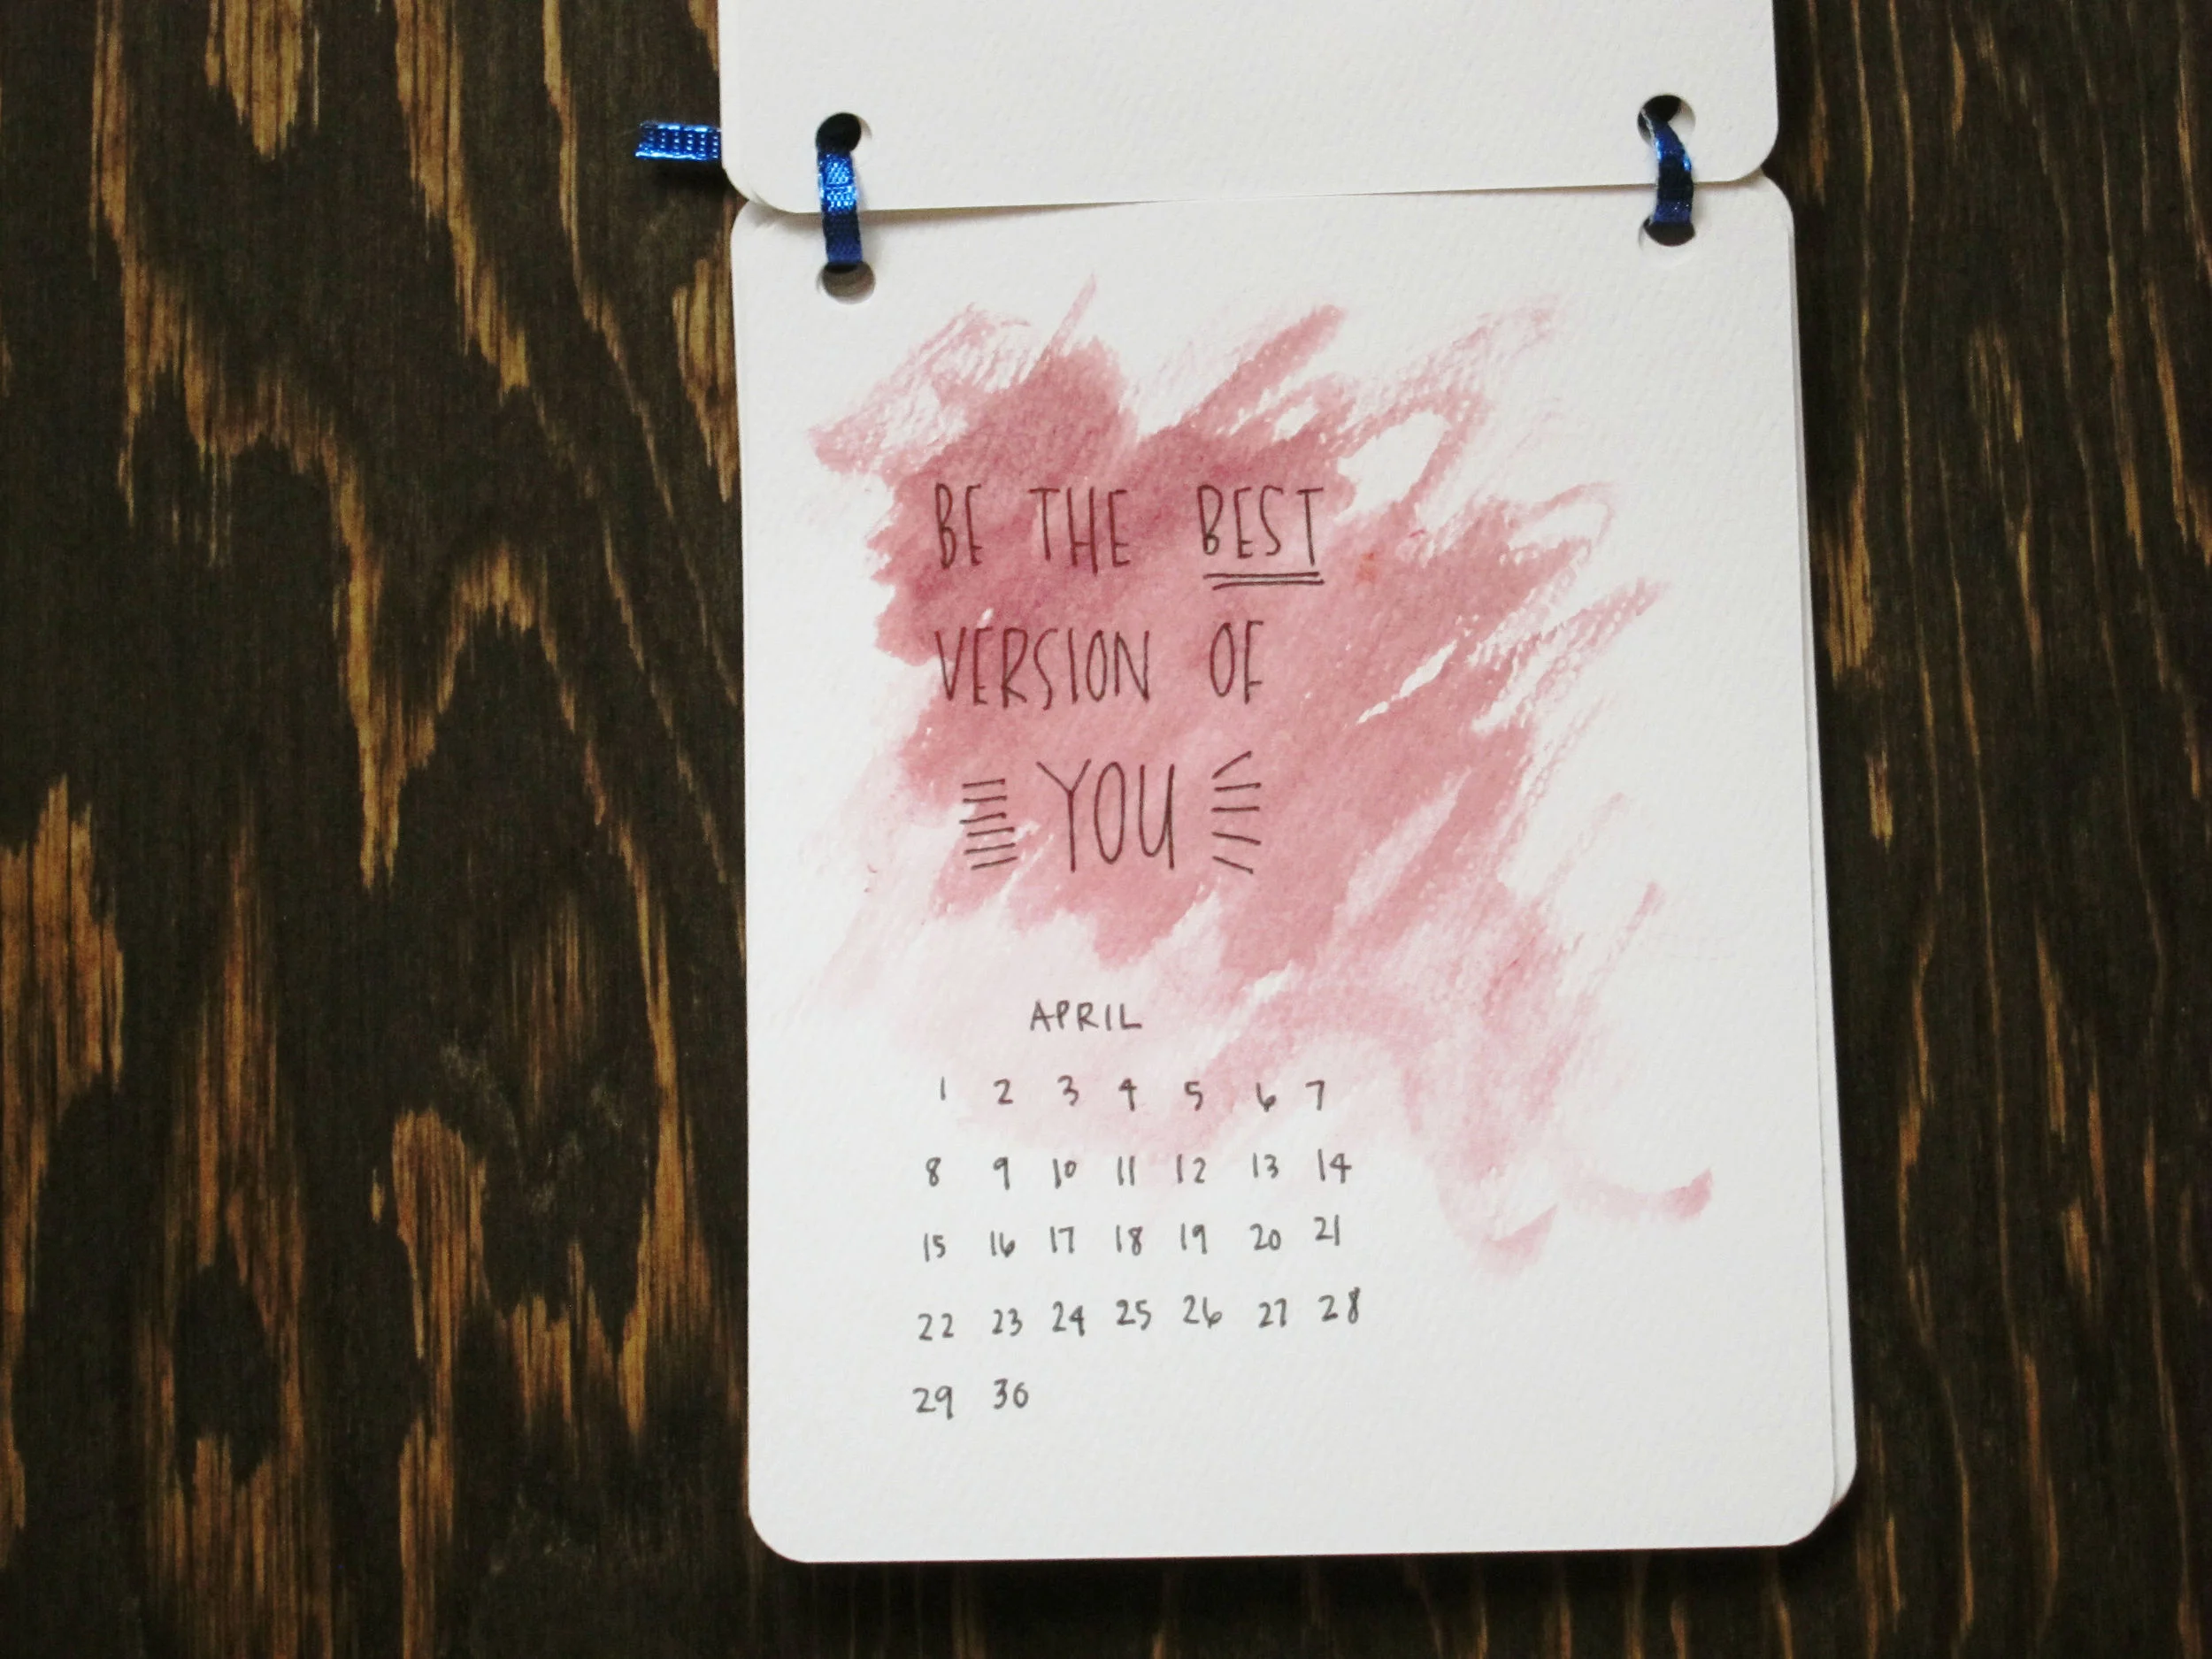 BE THE BEST
VERSION OF
YOU
APRIL
1 2 3 4 5 6 7
8 9 10 11 12 13 14
15 16 17 18 19 20 21
22 23 24 25 26 27 28
29 30